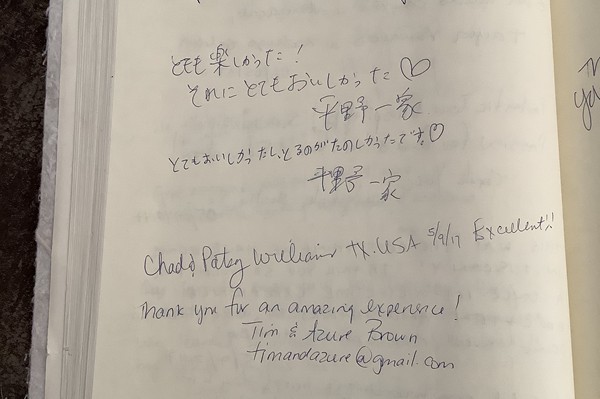 とても楽しかった!
それにとてもおいしかった♡
平野一家
とてもおいしかったし、とるのがたのしかったです。♡
平野一家
Chad & Patsy Williams TX. USA 5/9/17 Excellent!!
Thank you for an amazing experience!
Tim & Azure Brown
timandazure@gmail.com